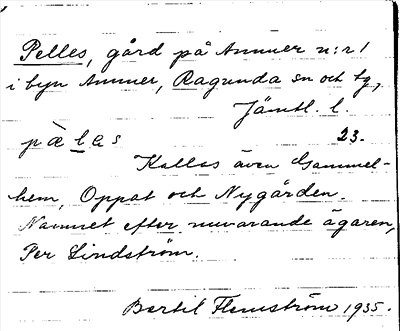 Pelles, gård på Ammer n:r 1
i byn Ammer, Ragunda sn och tg,
Jämtl. l.
pæ̀lɛs 23.
Kallas även Gammel-
hem, Oppat och Nygården.
Namnet efter nuvarande ägaren,
Per Lindström.
Bertil Flemström 1935.